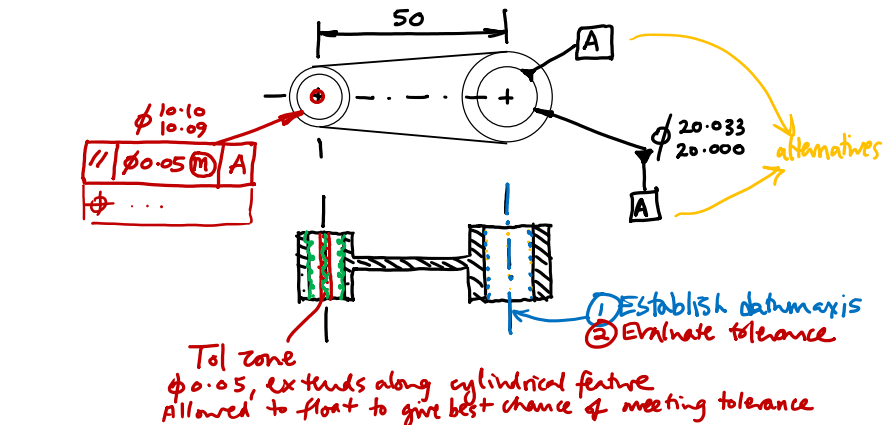 50
A
⌀ 10.10
10.09
// ⌀0.05 Ⓜ A
⌖ ...
⌀ 20.033
20.000
A
alternatives
① Establish datum axis
② Evaluate tolerance
Tol zone
⌀0.05, extends along cylindrical feature
Allowed to float to give best chance of meeting tolerance